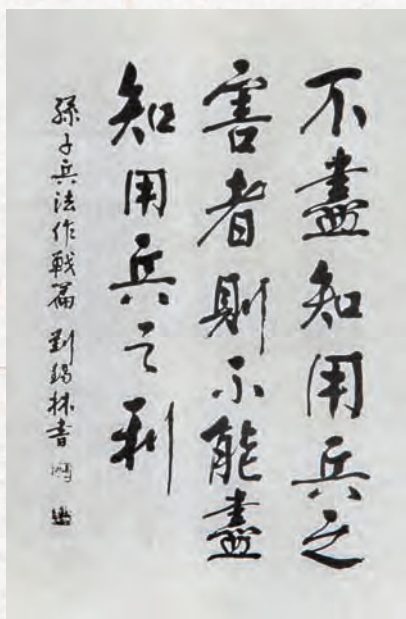 不盡知用兵之
害者則不能盡
知用兵之利
孫子兵法作戰篇 劉錫林書